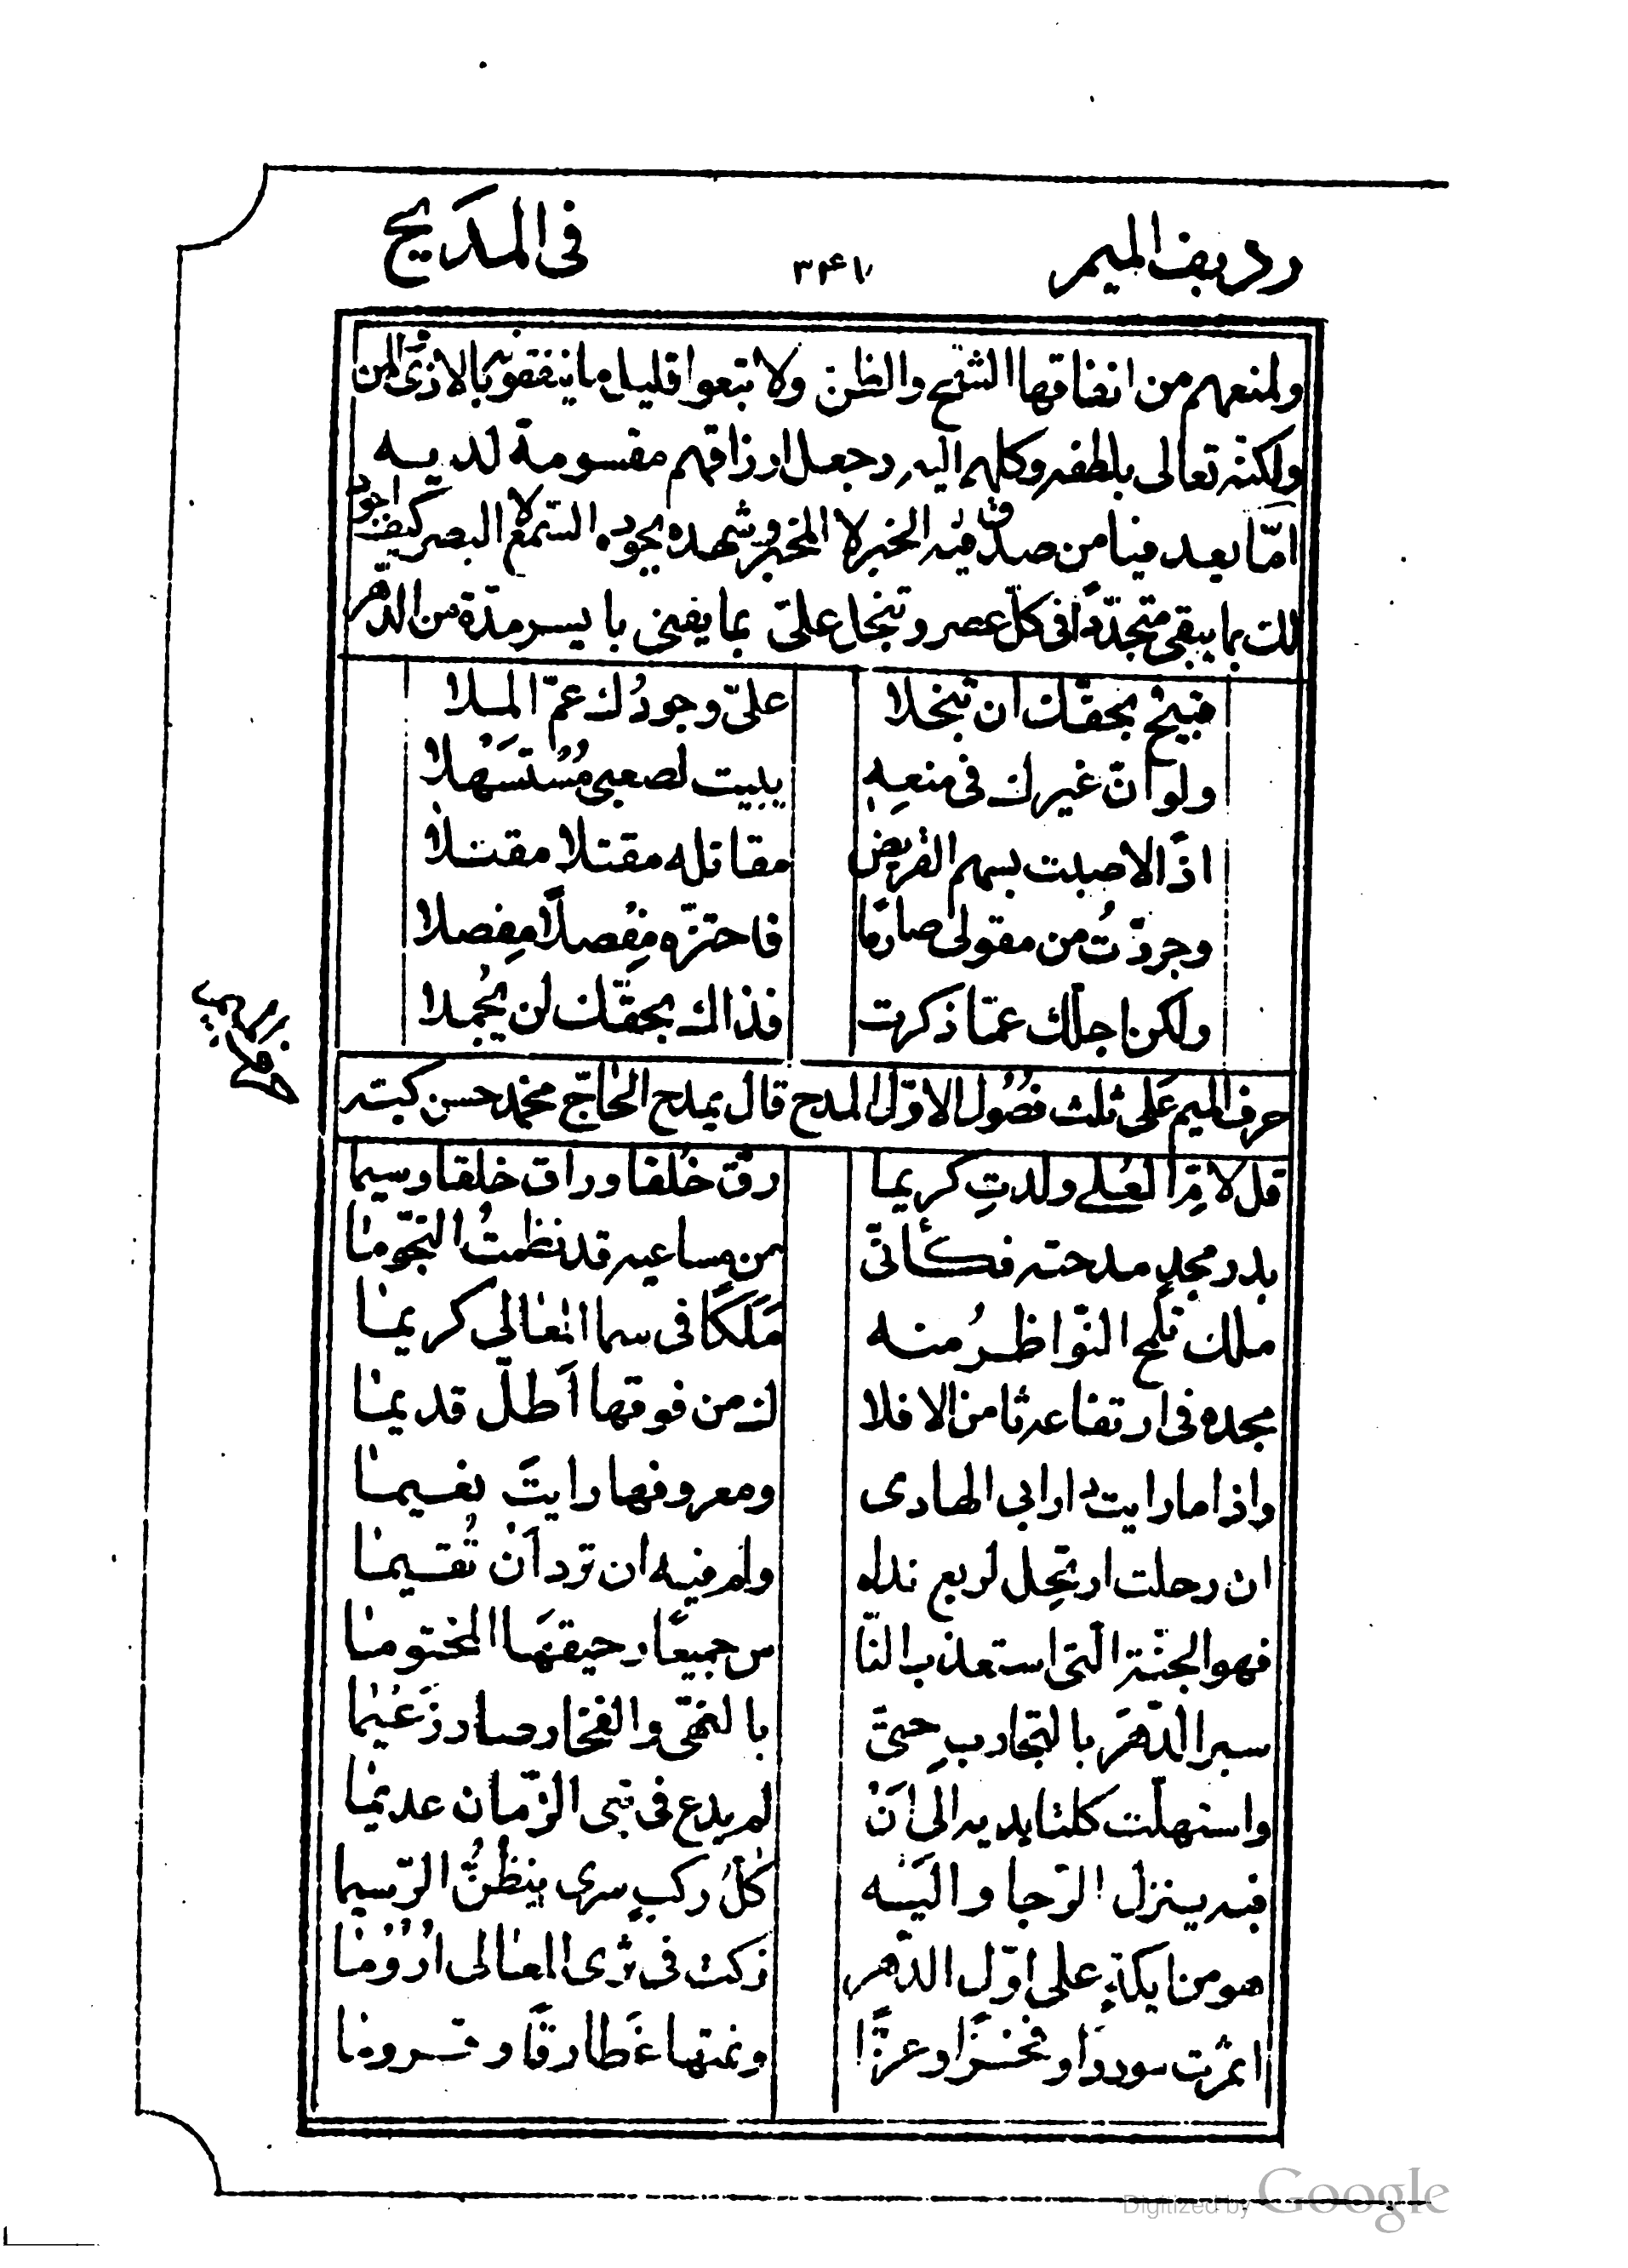 رديف الميم ٣٤٧ في المديح
ولمنعهم من انفاقها الشح والظن ولا تبعوا قليل ما ينفقونه بالاذى والمن
ولكنه تعالى بلطفه وكلهم اليه وجعل ارزاقهم مقسومة لديه
امّا بعد فيا من صدق فيه الخبر لا المخبر وشهد بجوده السمع لا البصر كيف اجود
لك بما يبقى متجدّدًا في كلّ عصر وتبخل عليّ بما يفنى بايسر مدّة من الدّهر
قبيحٌ بحقّك ان تبخلا عليّ وجودُك عمّ الملا
ولو انّ غيرك في منعِهِ يبيت لصعبي مُسْتَسهلا
اذًا لاصبت بسهم القريض مقاتله مقتلا مقتلا
وجردّتُ من مقولى صارمًا فاحتزّه مِفْصلًا مِفصلا
ولكن اجلّك عمّا ذكرت فذاك بحقّك لن يُجملا
في مديح
حرف الميم على ثلث فصُول الاوّل المدح قال يمدح الحاجّ محمّد حسن كبّه
قل لامّ العُلى ولدتِ كريما رقّ خُلقا وراق خلقا وسيما
بدر مجدٍ مدحته فكأنّى من مساعيه قد نظمتُ النّجوما
ملك تلمح النّواظرُ منه مَلَكًا في سما المعالى كريما
مجده في ارتفاعه ثامن الافلا ك من فوقها أطلّ قديما
واذا ما رايت دار ابي الهادى ومعروفها رايتَ نعيما
ان رحلت ارتحل لربع نداه واقم فيه ان ترد أن تُقيما
فهو الجنّة الّتى استعذب النّا س جميعًا رحيقَها المختوما
سبر الدّهرَ بالتجاربِ حتىّ بالنهى والفخار صار زَعيما
واستهلّت كلتا يديه الى أنْ لم يدع في بنى الزّمان عديما
فبه ينزل الرّجا واليه كلّ ركبٍ سرى ينظنّ الرّسيما
هو من ايكةٍ على اوّل الدّهر زكت في ثرى المعالى ارُوْما
اثمرت سوددًا وفخرًا وعزّا ونمتها غَطارفًا وقروما